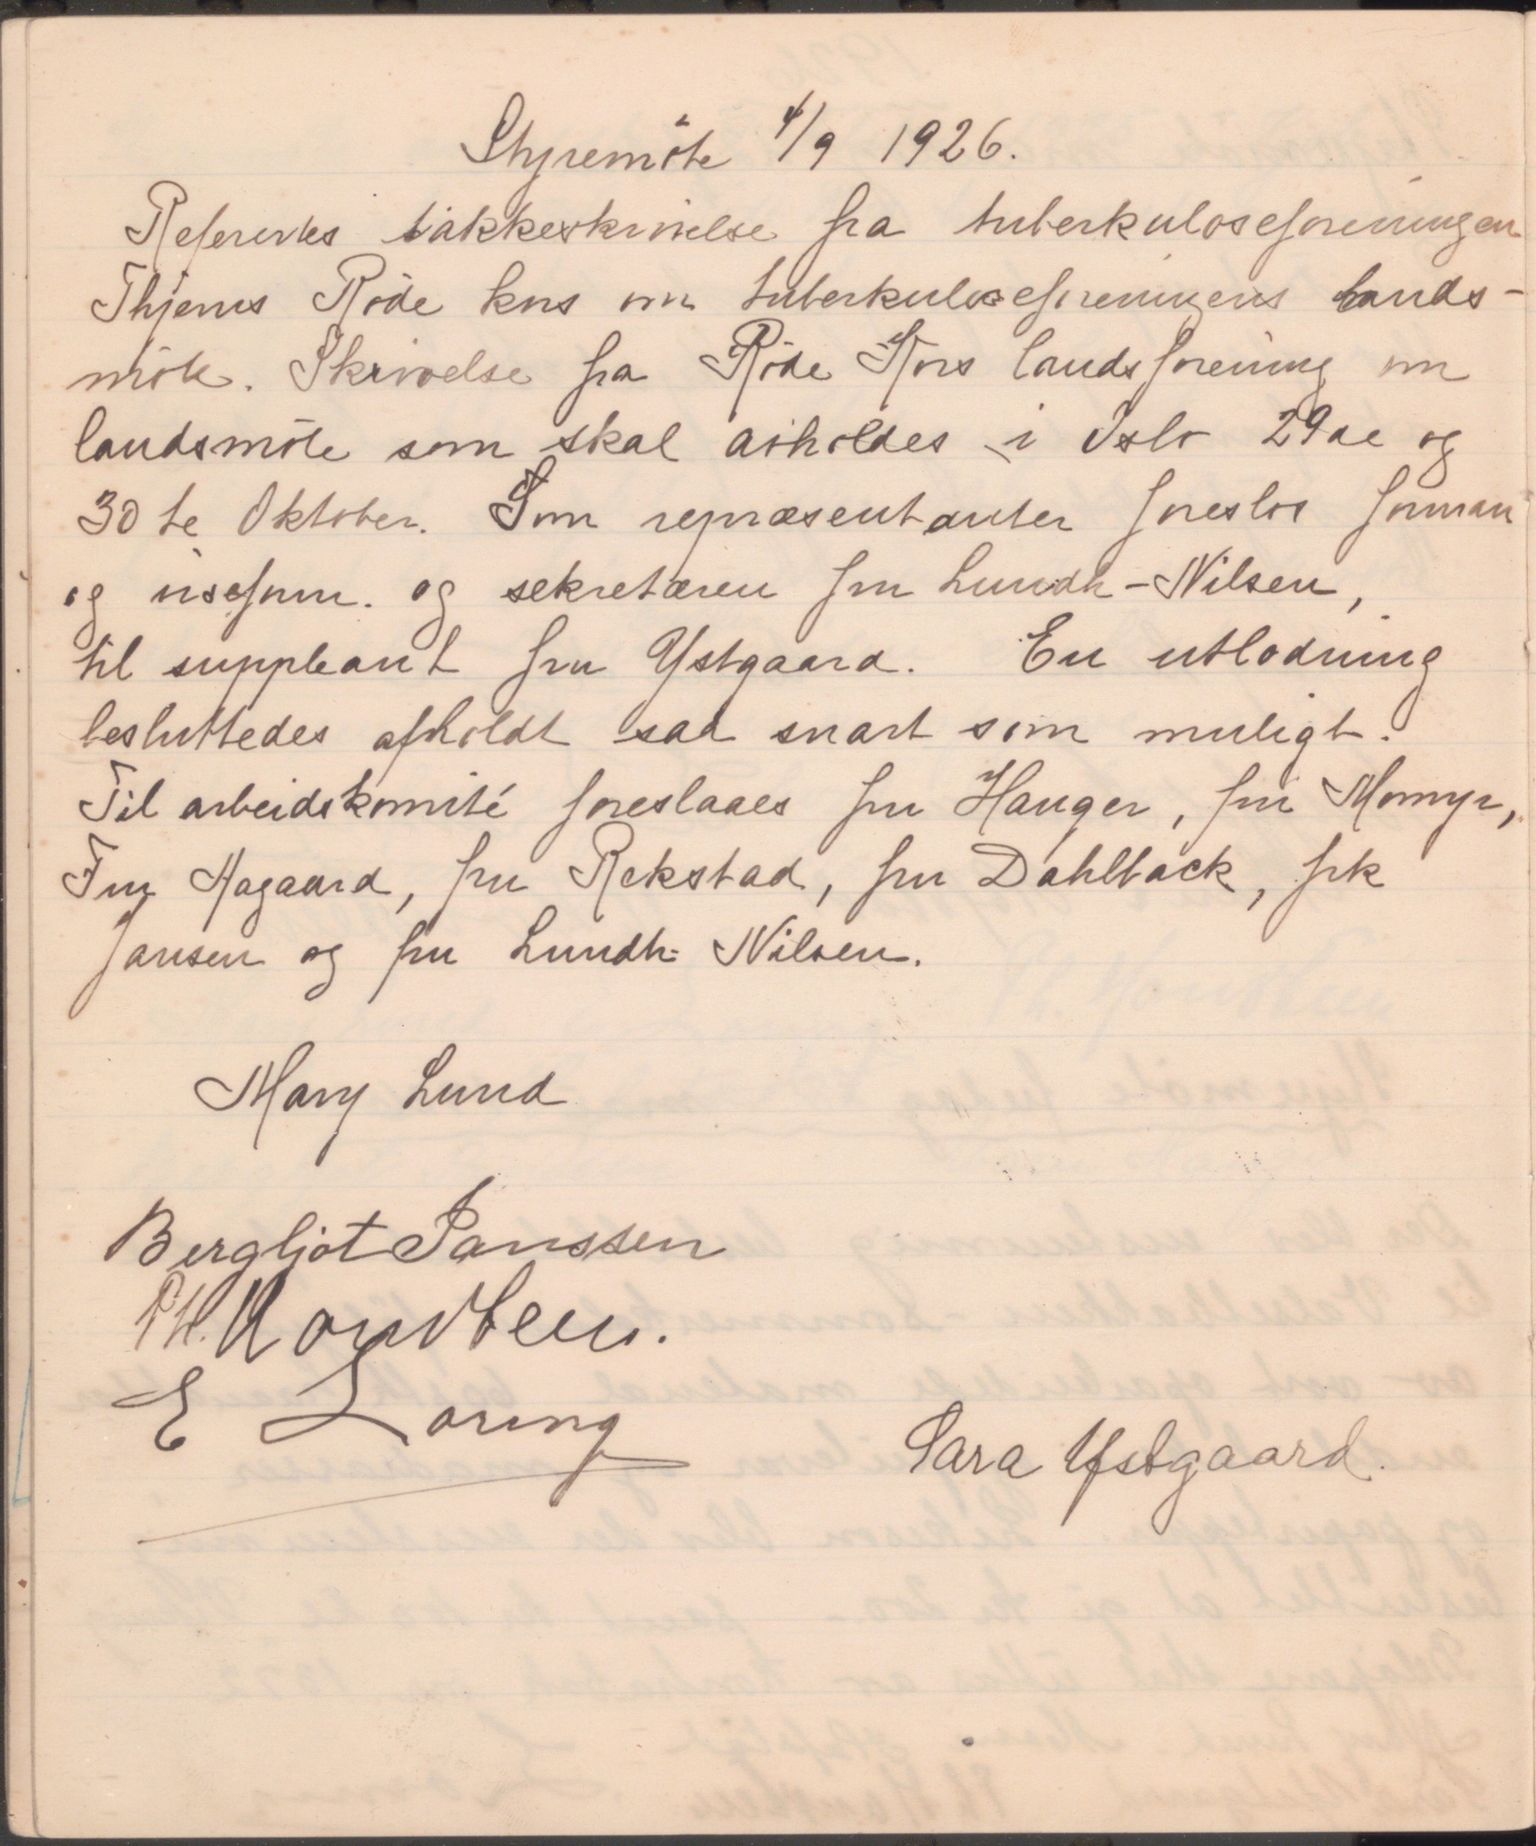 Styremöte 4/9 1926.
Refertes takkeskrivelse fra tuberkuloseforeningen
Skjerns Röde kors om tuberkuloseforeningens lands-
möte. Skrivelse fra Röde Kors landsforening om
landsmöte som skal avholdes i Oslo 29de og
30te Oktober. Som repræsentanter foreslos forman
og viseform. og sekretæren fru Lundh-Nilsen,
til suppleant fru Ystgaard. En utlodning
besluttedes afholdt saa snart som muligt.
Til arbeidskomité foreslaaes fru Hauger, fru Momyr,
Fru Aagaard, fru Rekstad, fru Dahlback, frk
Jansen og fru Lundh-Nilsen.
Mary Lund
Bergljot Janssen
E Loring
Sara Ystgaard.